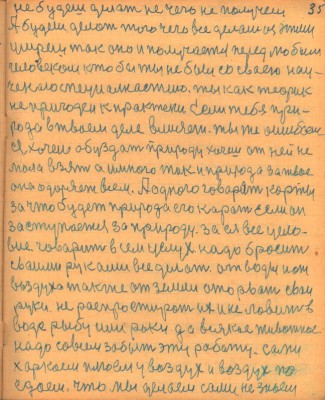 не будем делат не чего не получем 35
Я будем делат того чего все делаем из этим
умрем так оно и получается перед любым
человеком кто бы ты не был со своею нау-
тебя как теорик
не пригоден к практики Если тебя при-
рода в твоем деле ты же ошибаеш
ся хочеш обуздат природу хочеш от ней не
мола взят а много так и природа за твое
она одоряет всем. говорят
за что будет природа его карат если он
заступается за природу. за ея все цело-
говорит всем целую надо бросит
своими руками все делат от воды и от
воздуха также от земли оторват свои
руки. не распростират их и не ловит в
воде рыбу или раки да всякае животное
надо совсем забыт эту работу. сами
харкаем плюем у воздух и воздух по
едаем. что мы делаем сами не знаем